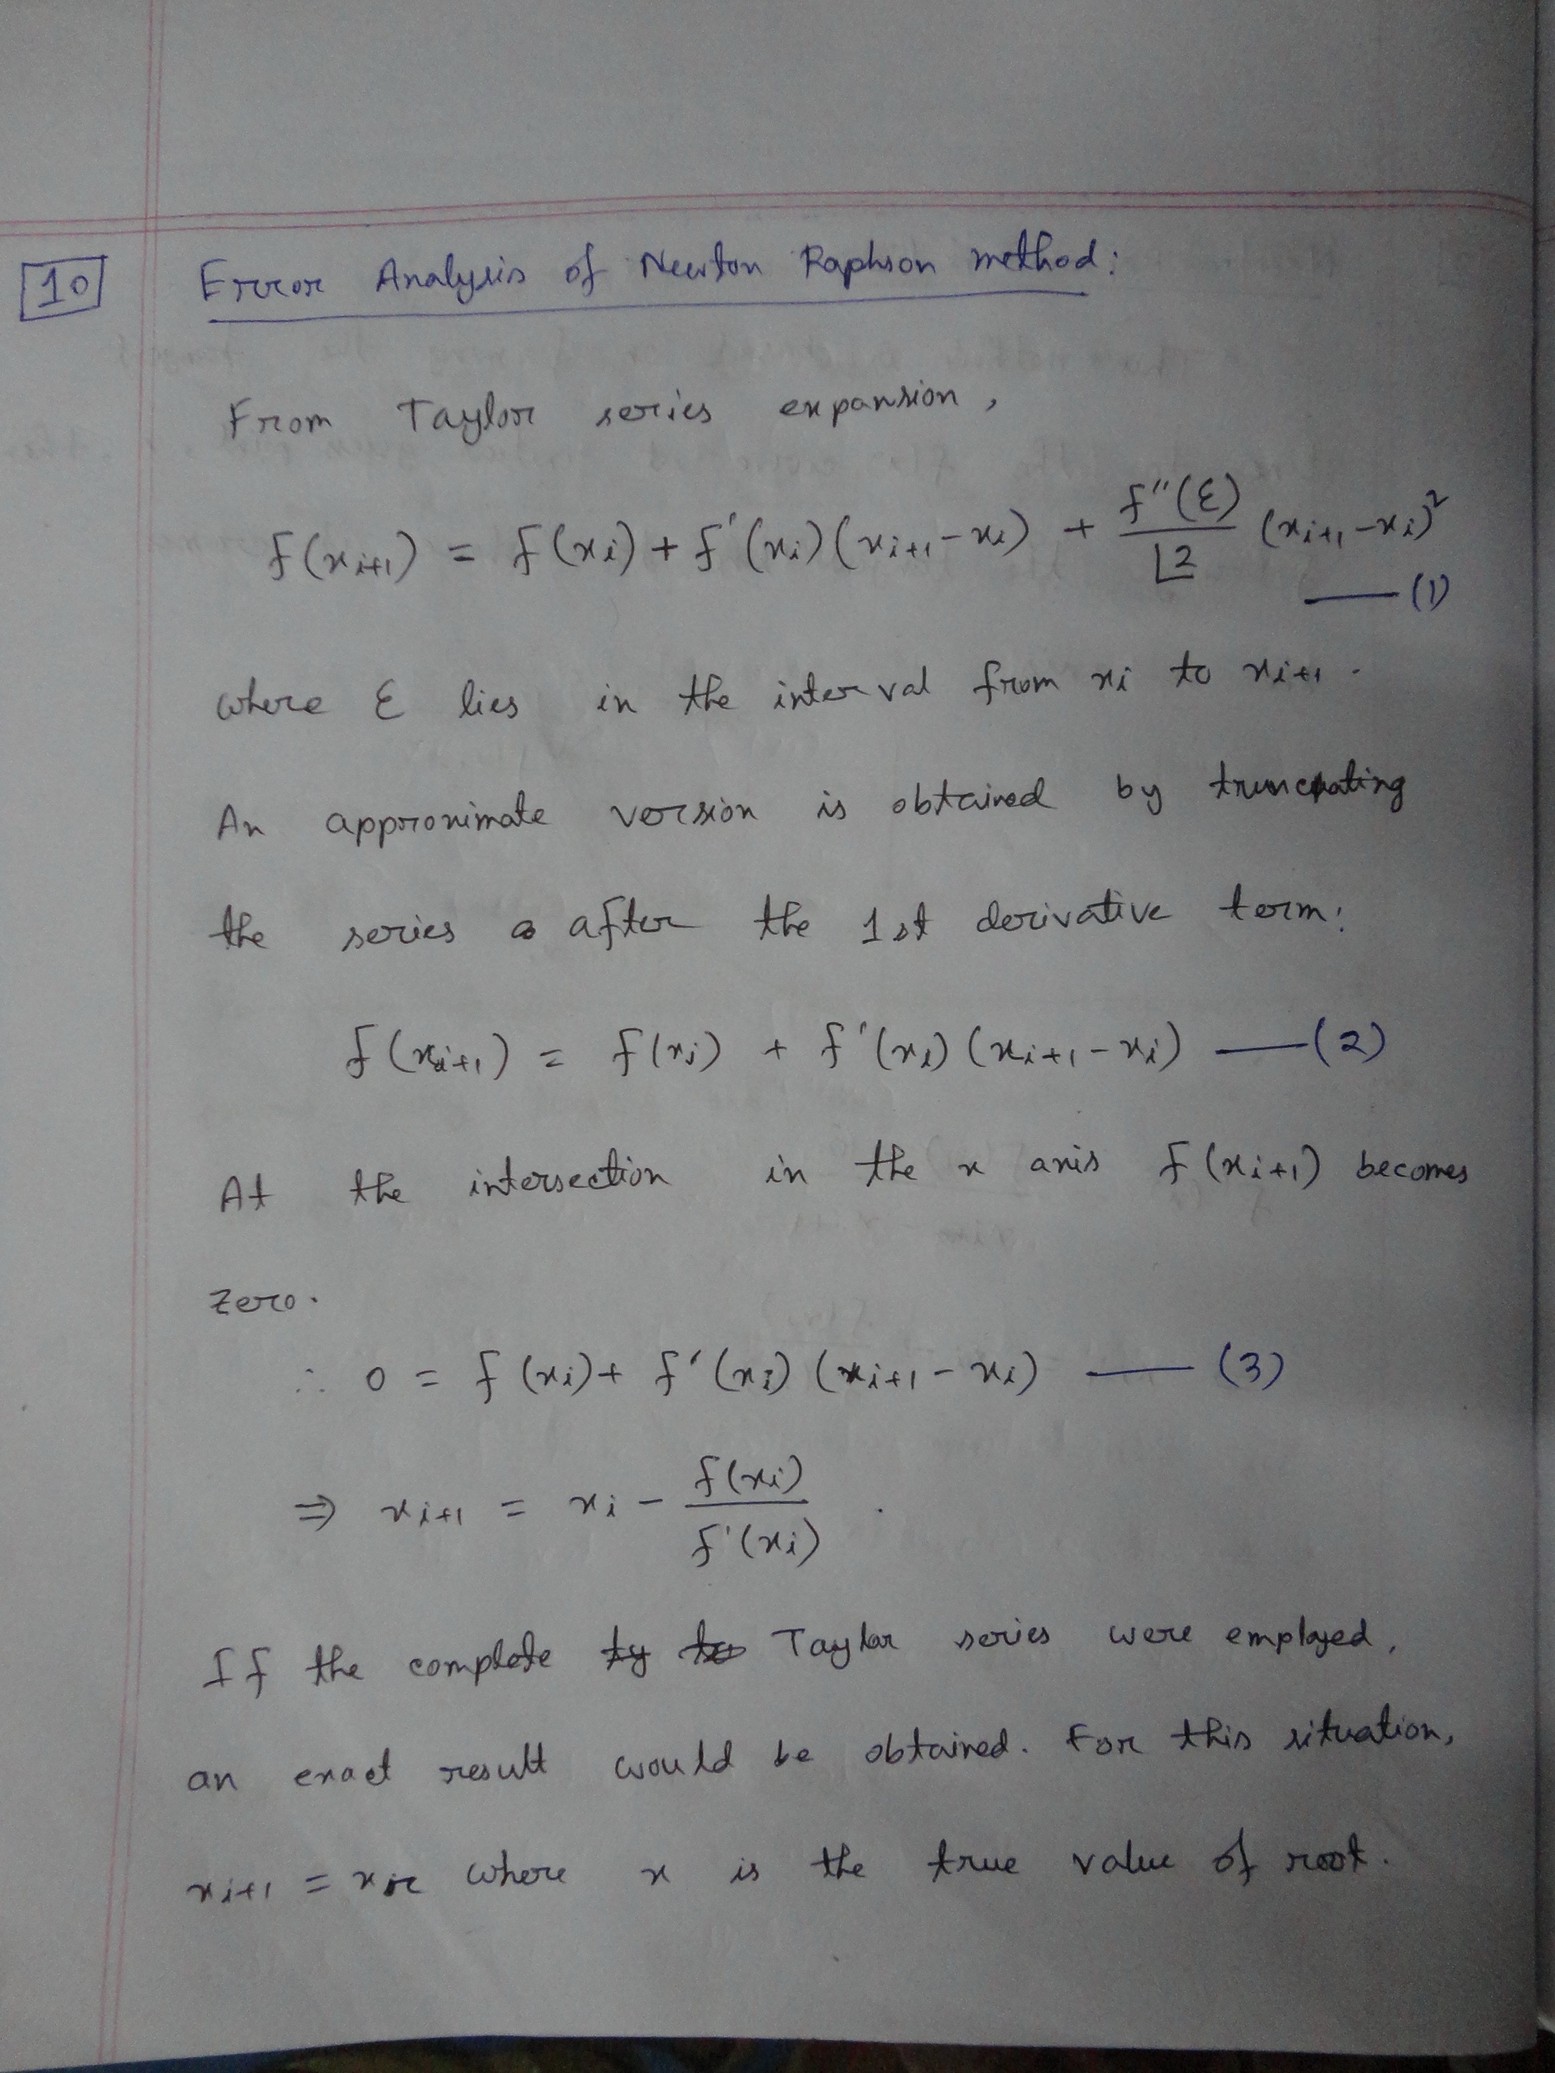 10 Error Analysis of Newton Raphson method:
From Taylor series expansion,
f(xi+1) = f(xi) + f'(xi)(xi+1 - xi) + f''(ε)/⌊2 (xi+1 - xi)²
—(1)
where ε lies in the interval from xi to xi+1.
An approximate version is obtained by truncating
the series after the 1st derivative term:
f(xi+1) = f(xi) + f'(xi)(xi+1 - xi) —(2)
At the intersection in the x axis f(xi+1) becomes
zero.
∴ 0 = f(xi) + f'(xi)(xi+1 - xi) —(3)
⇒ xi+1 = xi - f(xi)/f'(xi).
If the complete Taylor series were employed,
an exact result would be obtained. For this situation,
xi+1 = xr where x is the true value of root.